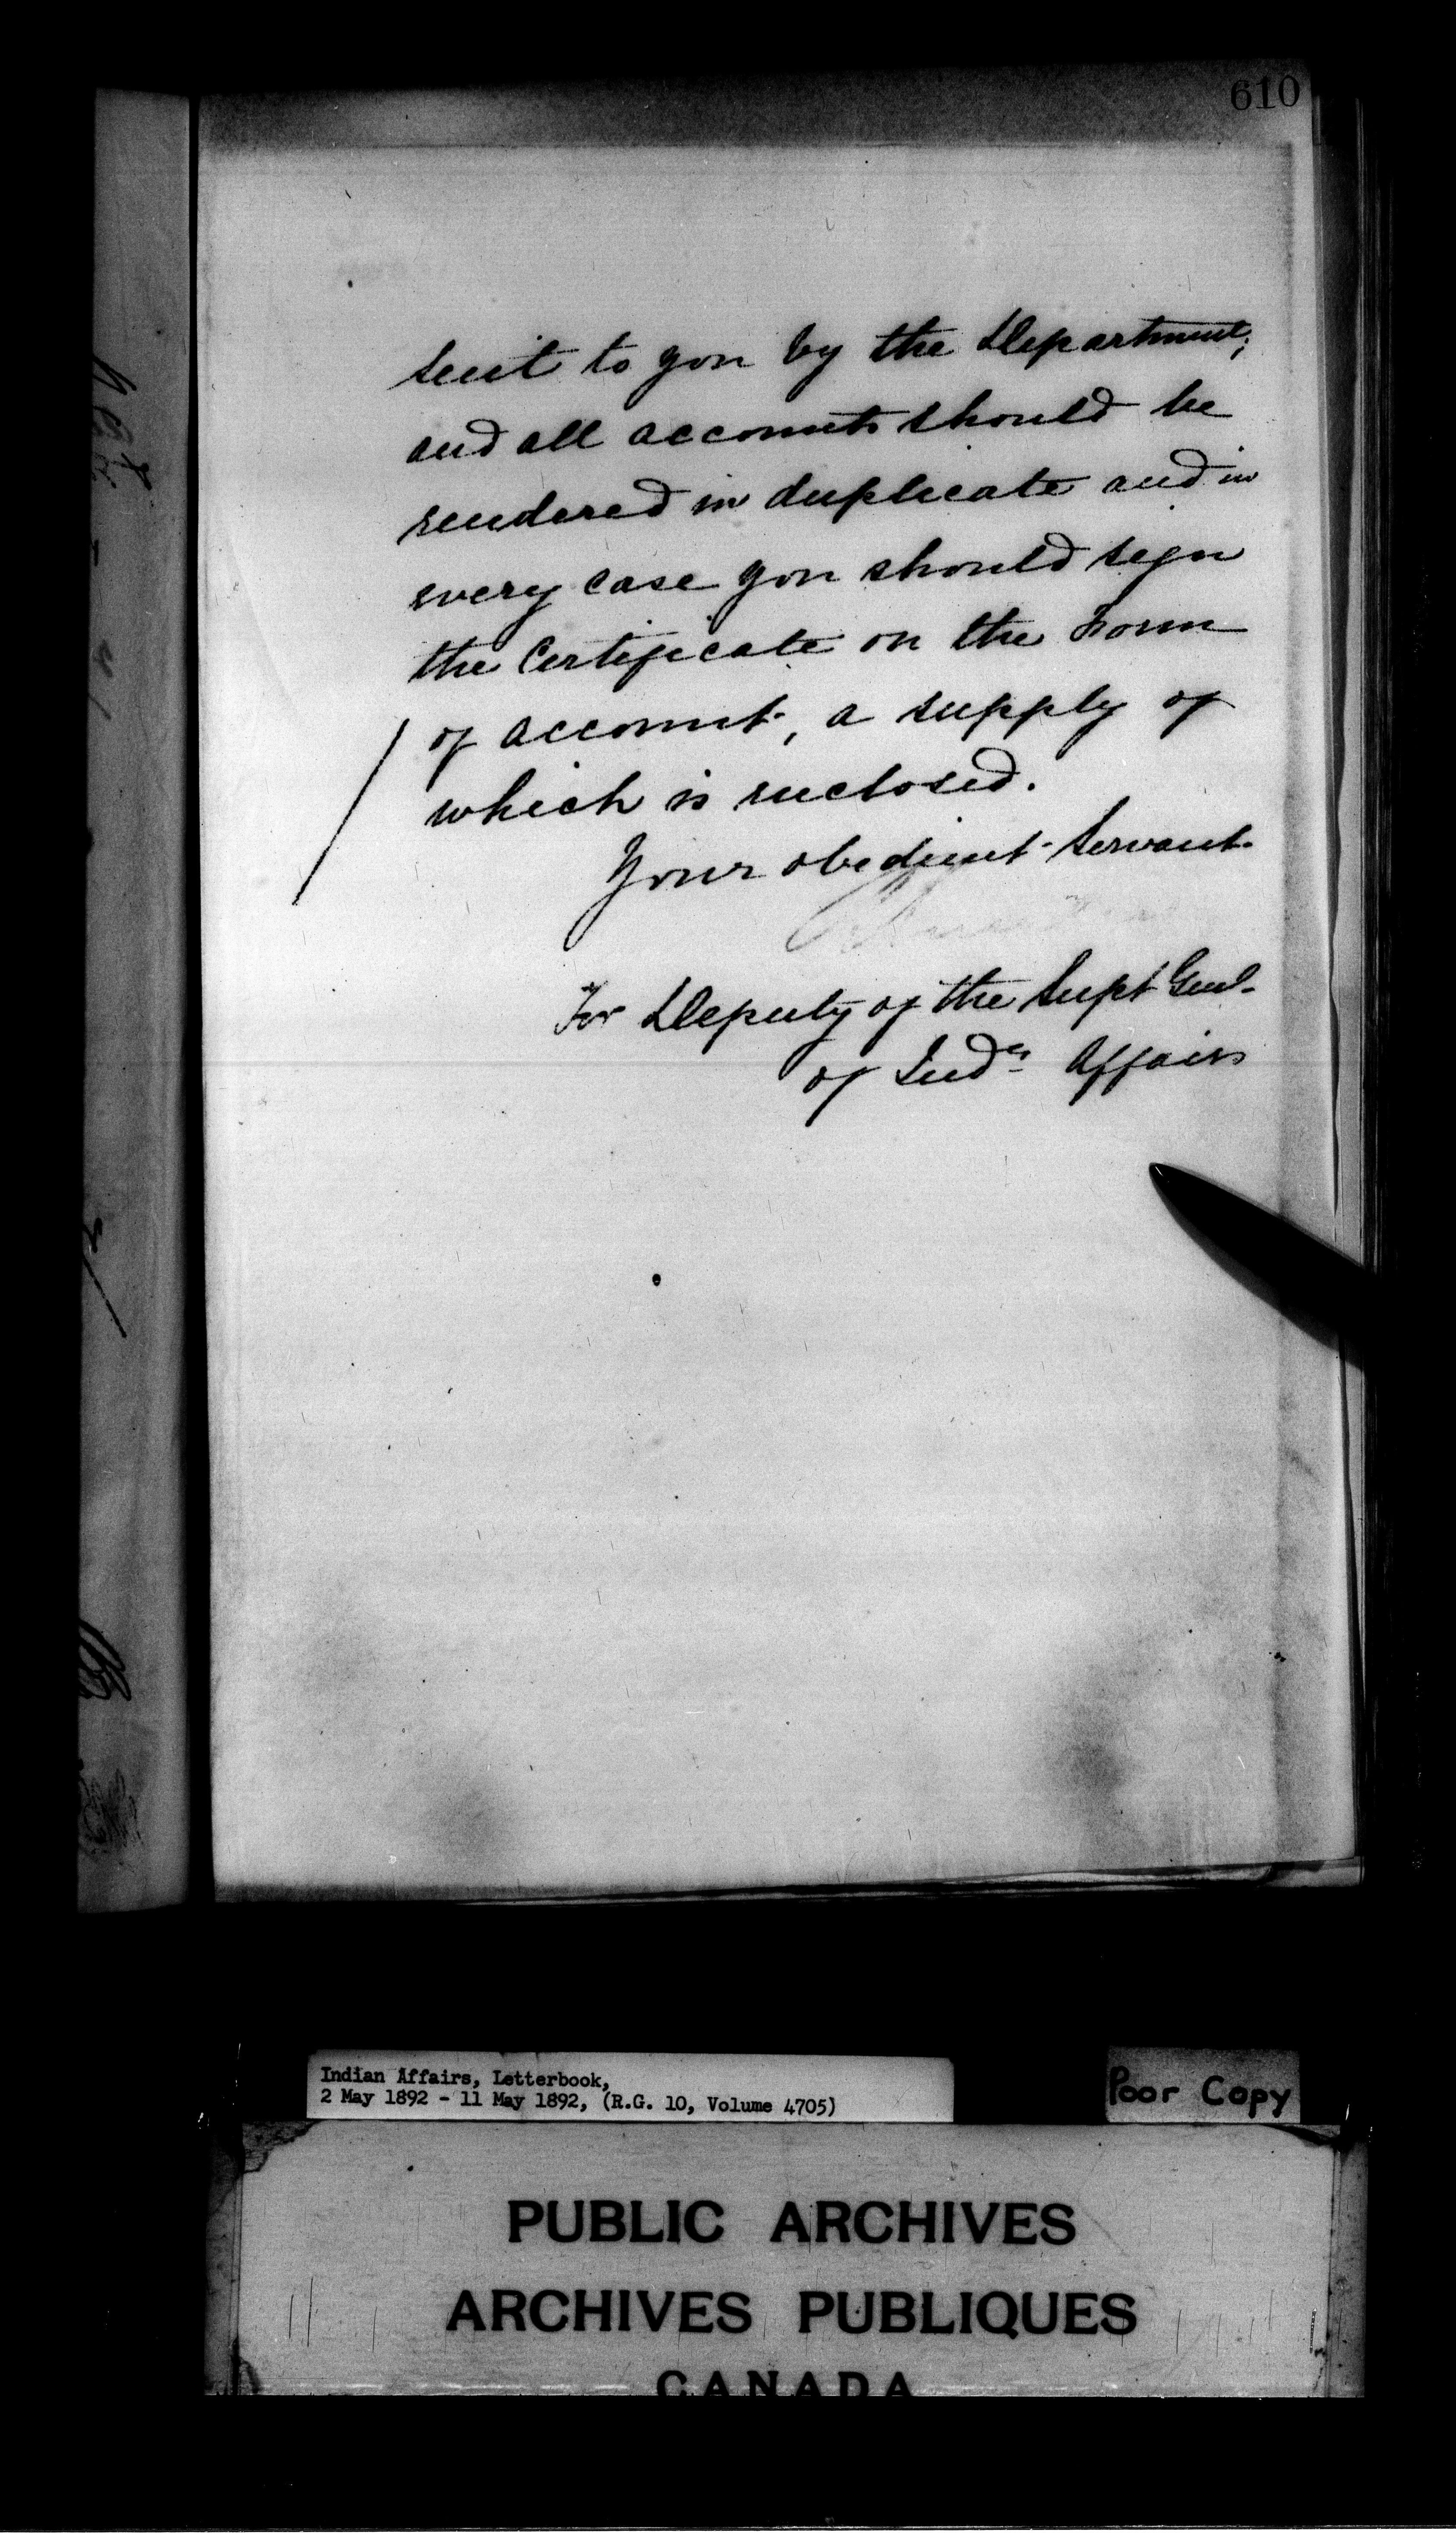 610
sent to you by the Department;
and all accounts should be
rendered in duplicate and in
every case you should sign
the Certificate on the Form
of account, a supply of
which is enclosed.
Your obedient Servant
For Deputy of the Supt Genl.
of Indn Affairs
Indian Affairs, Letterbook,
2 May 1892 - 11 May 1892, (R.G. 10, Volume 4705)
Poor Copy
PUBLIC ARCHIVES
ARCHIVES PUBLIQUES
CANADA